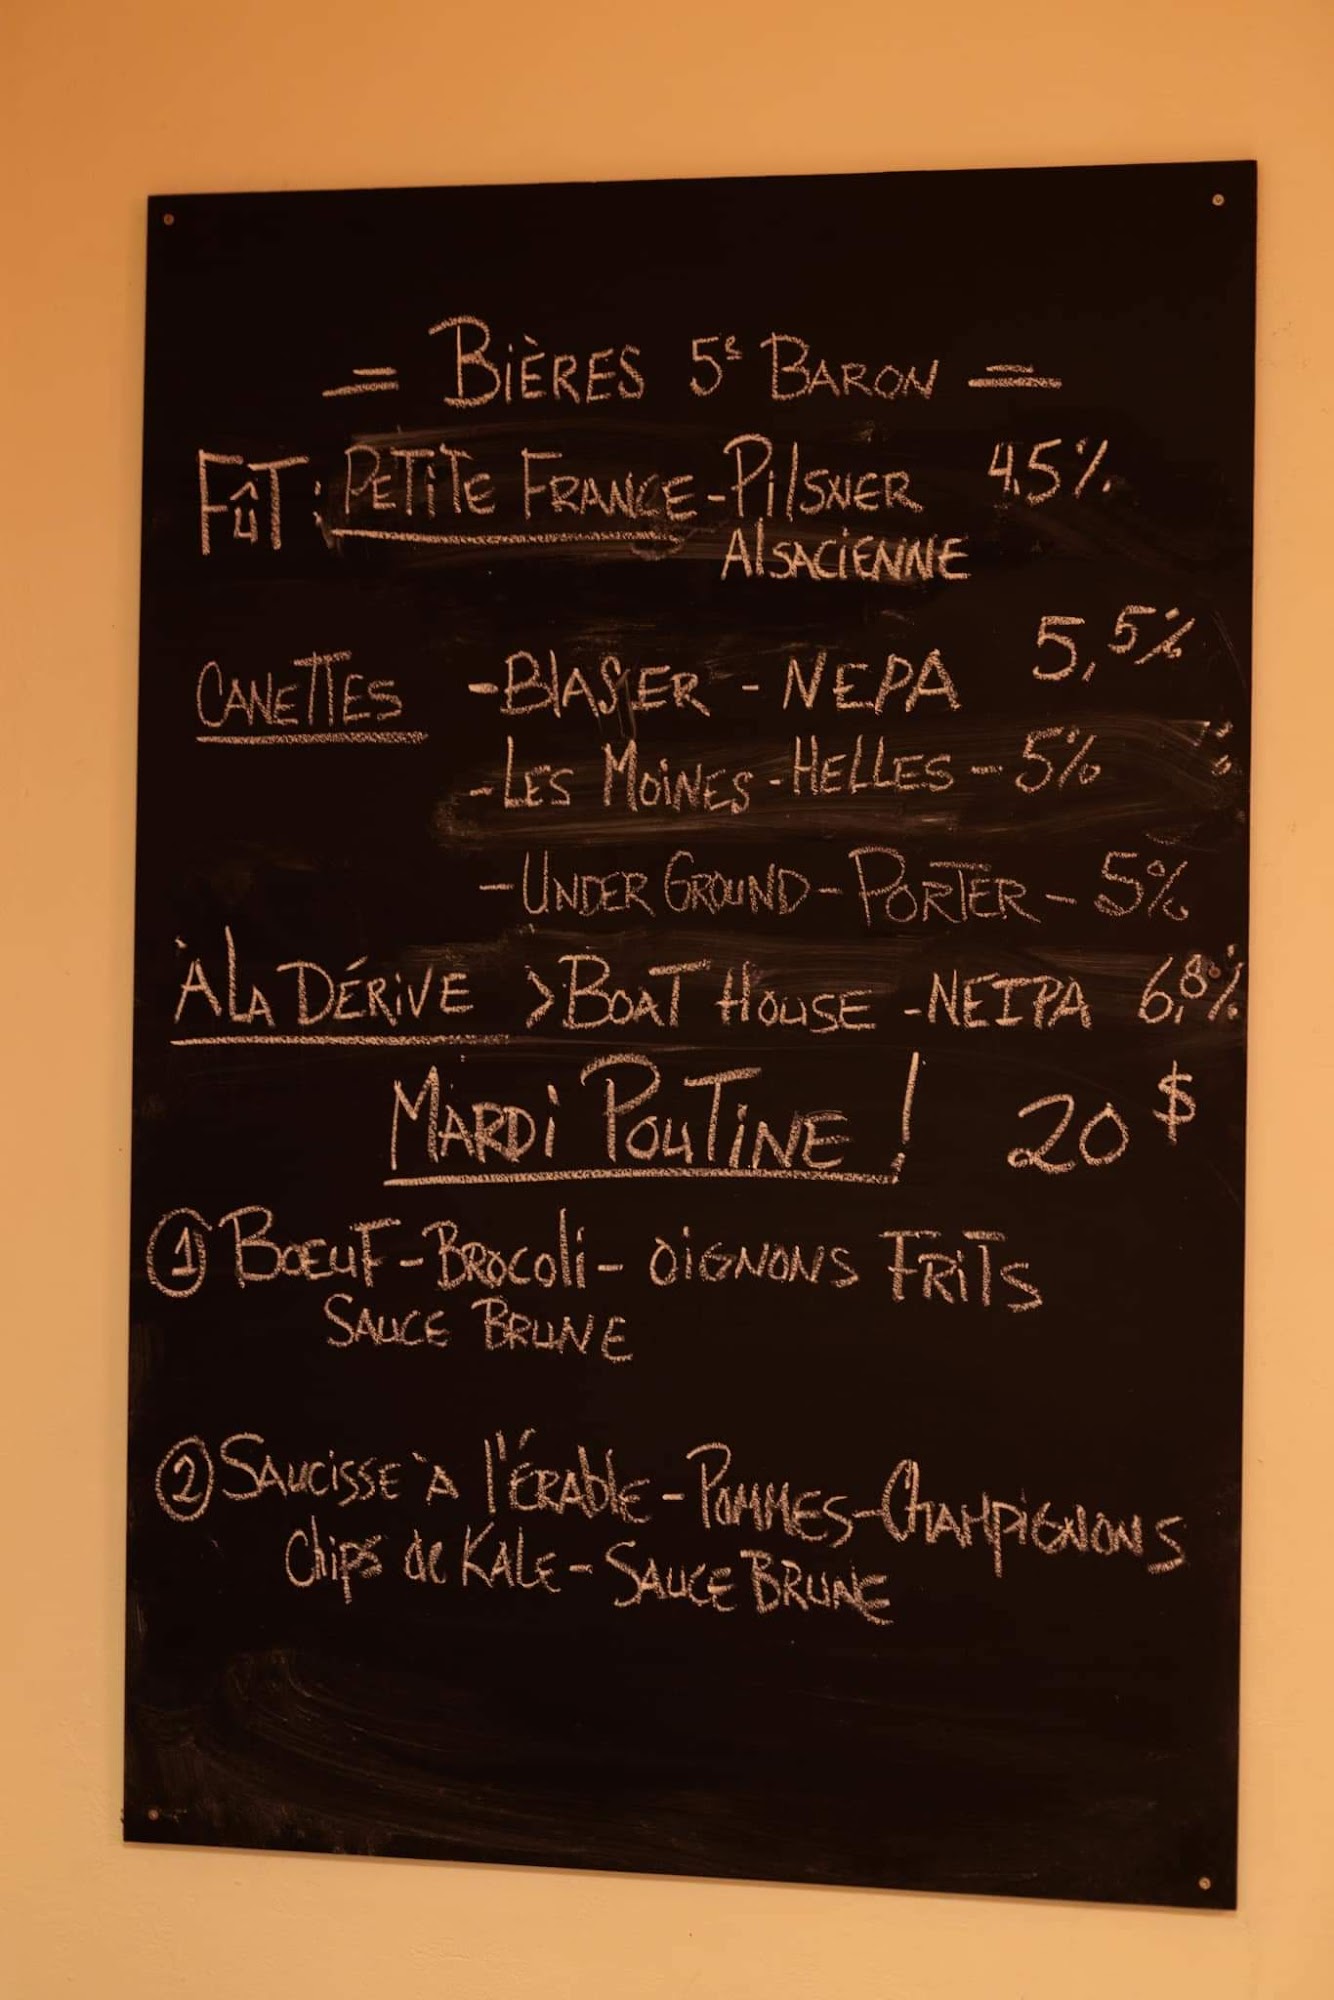 = BIÈRES 5e BARON =
FÛT : PETITE FRANCE - PILSNER 4,5%
ALSACIENNE
CANETTES - BLASER - NEPA 5,5%
- LES MOINES - HELLES - 5%
- UNDER GROUND - PORTER - 5%
À LA DÉRIVE > BOAT HOUSE - NEIPA 6,8%
MARDI POUTINE ! 20$
① BOEUF - BROCOLI - OIGNONS FRITS
SAUCE BRUNE
② SAUCISSE À L'ÉRABLE - POMMES - CHAMPIGNONS
Chips de KALE - SAUCE BRUNE